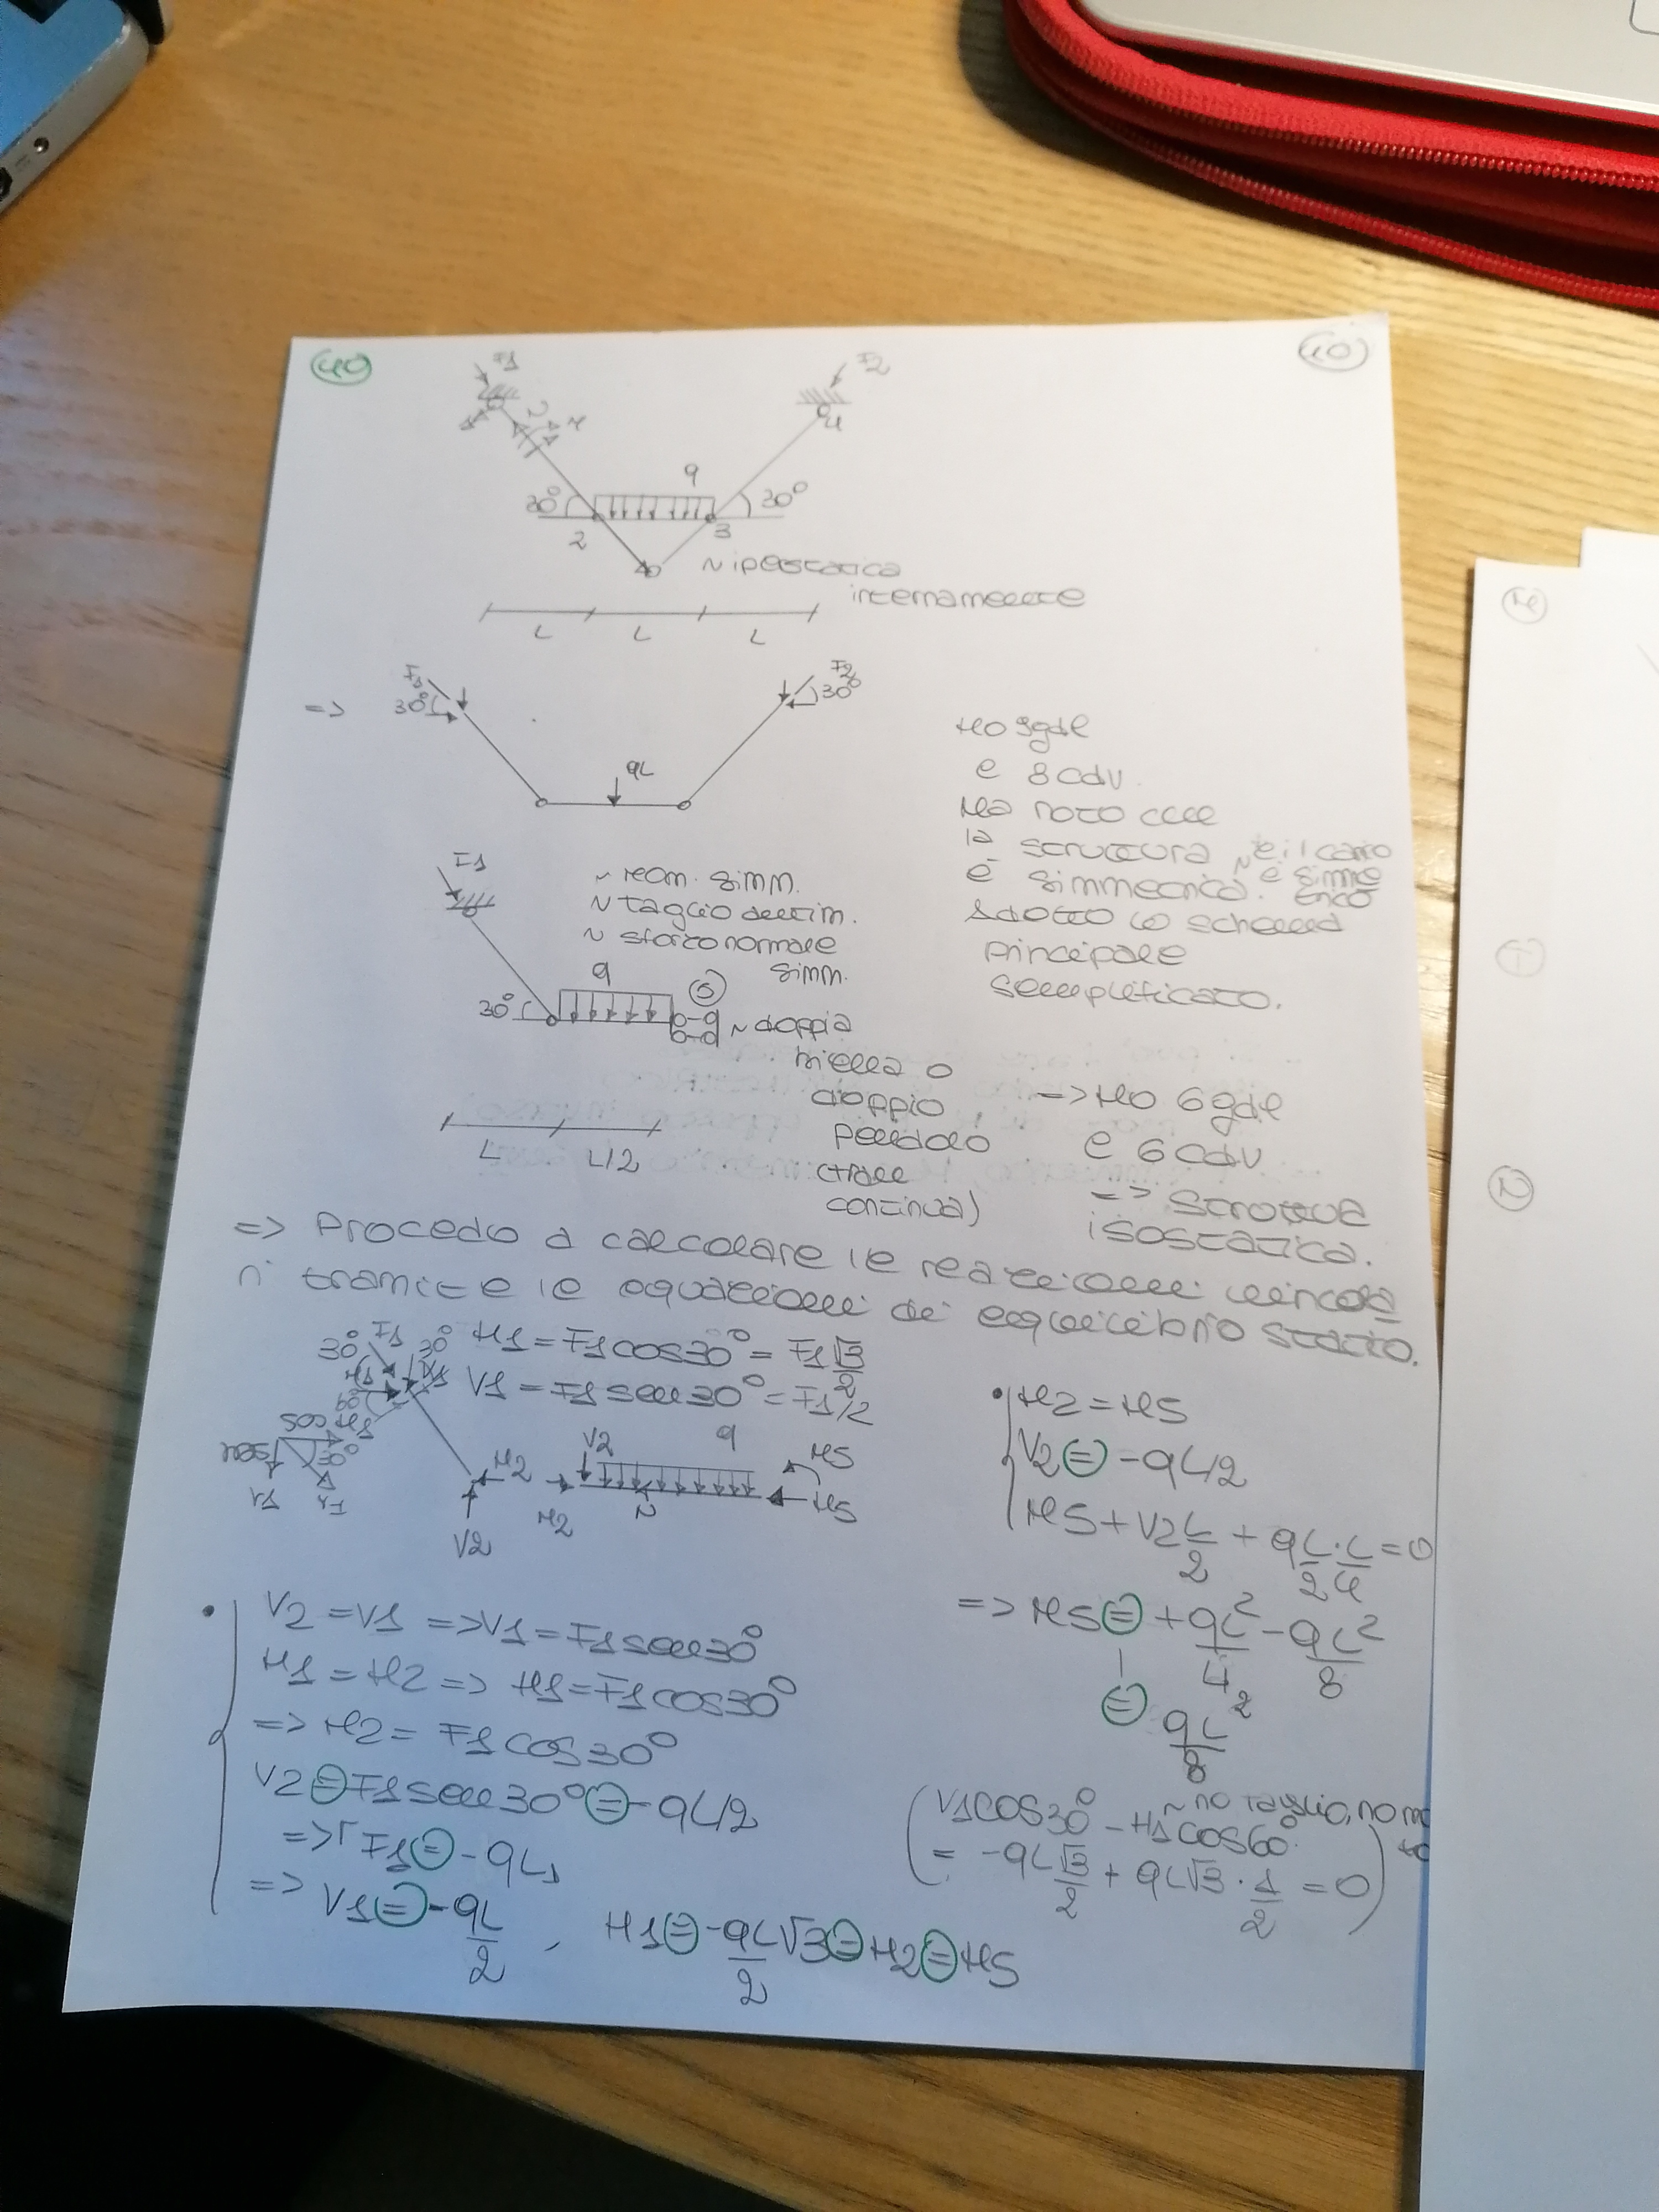 40
40
F1
F2
N
4
q
30°
30°
2
3
~ iperstatica
internamente
L
L
L
=>
F1
30°
F2
30°
qL
Ho 9gdl
e 8 cdv.
Ma noto che
la struttura ~ e il carico
è simmetrica. è simme
trico
Adotto lo schema
principale
semplificato.
F1
~ reaz. simm.
~ taglio
~ sforzo normale
simm.
q
5
30°
~ doppia
biella o
doppio
pendolo
(trave
continua)
L
L/2
=> Ho 6gdl
e 6 cdv
=> struttura
isostatica.
=> Procedo a calcolare le reazioni vincola
ri tramite le equazioni di equilibrio statico.
30° F1 30°
H1 = F1 cos30° = F1 √3/2
V1 = F1 sen30° = F1/2
V2
H2
V2
H2
q
M5
H5
H2 = H5
V2 = -qL/2
M5 + V2 L/2 + q L/2 · L/4 = 0
=> M5 = + qL²/4 - qL²/8
= qL²/8
V2 = V1 => V1 = F1 sen30°
H1 = H2 => H1 = F1 cos30°
=> H2 = F1 cos30°
V2 = F1 sen30° = -qL/2
=> F1 = -qL
=> V1 = -qL/2 , H1 = -qL/2 √3 = H2 = H5
(V1 cos30° - H1 cos60°
~ no taglio, no
= -qL √3/2 + qL√3 · 1/2 = 0)